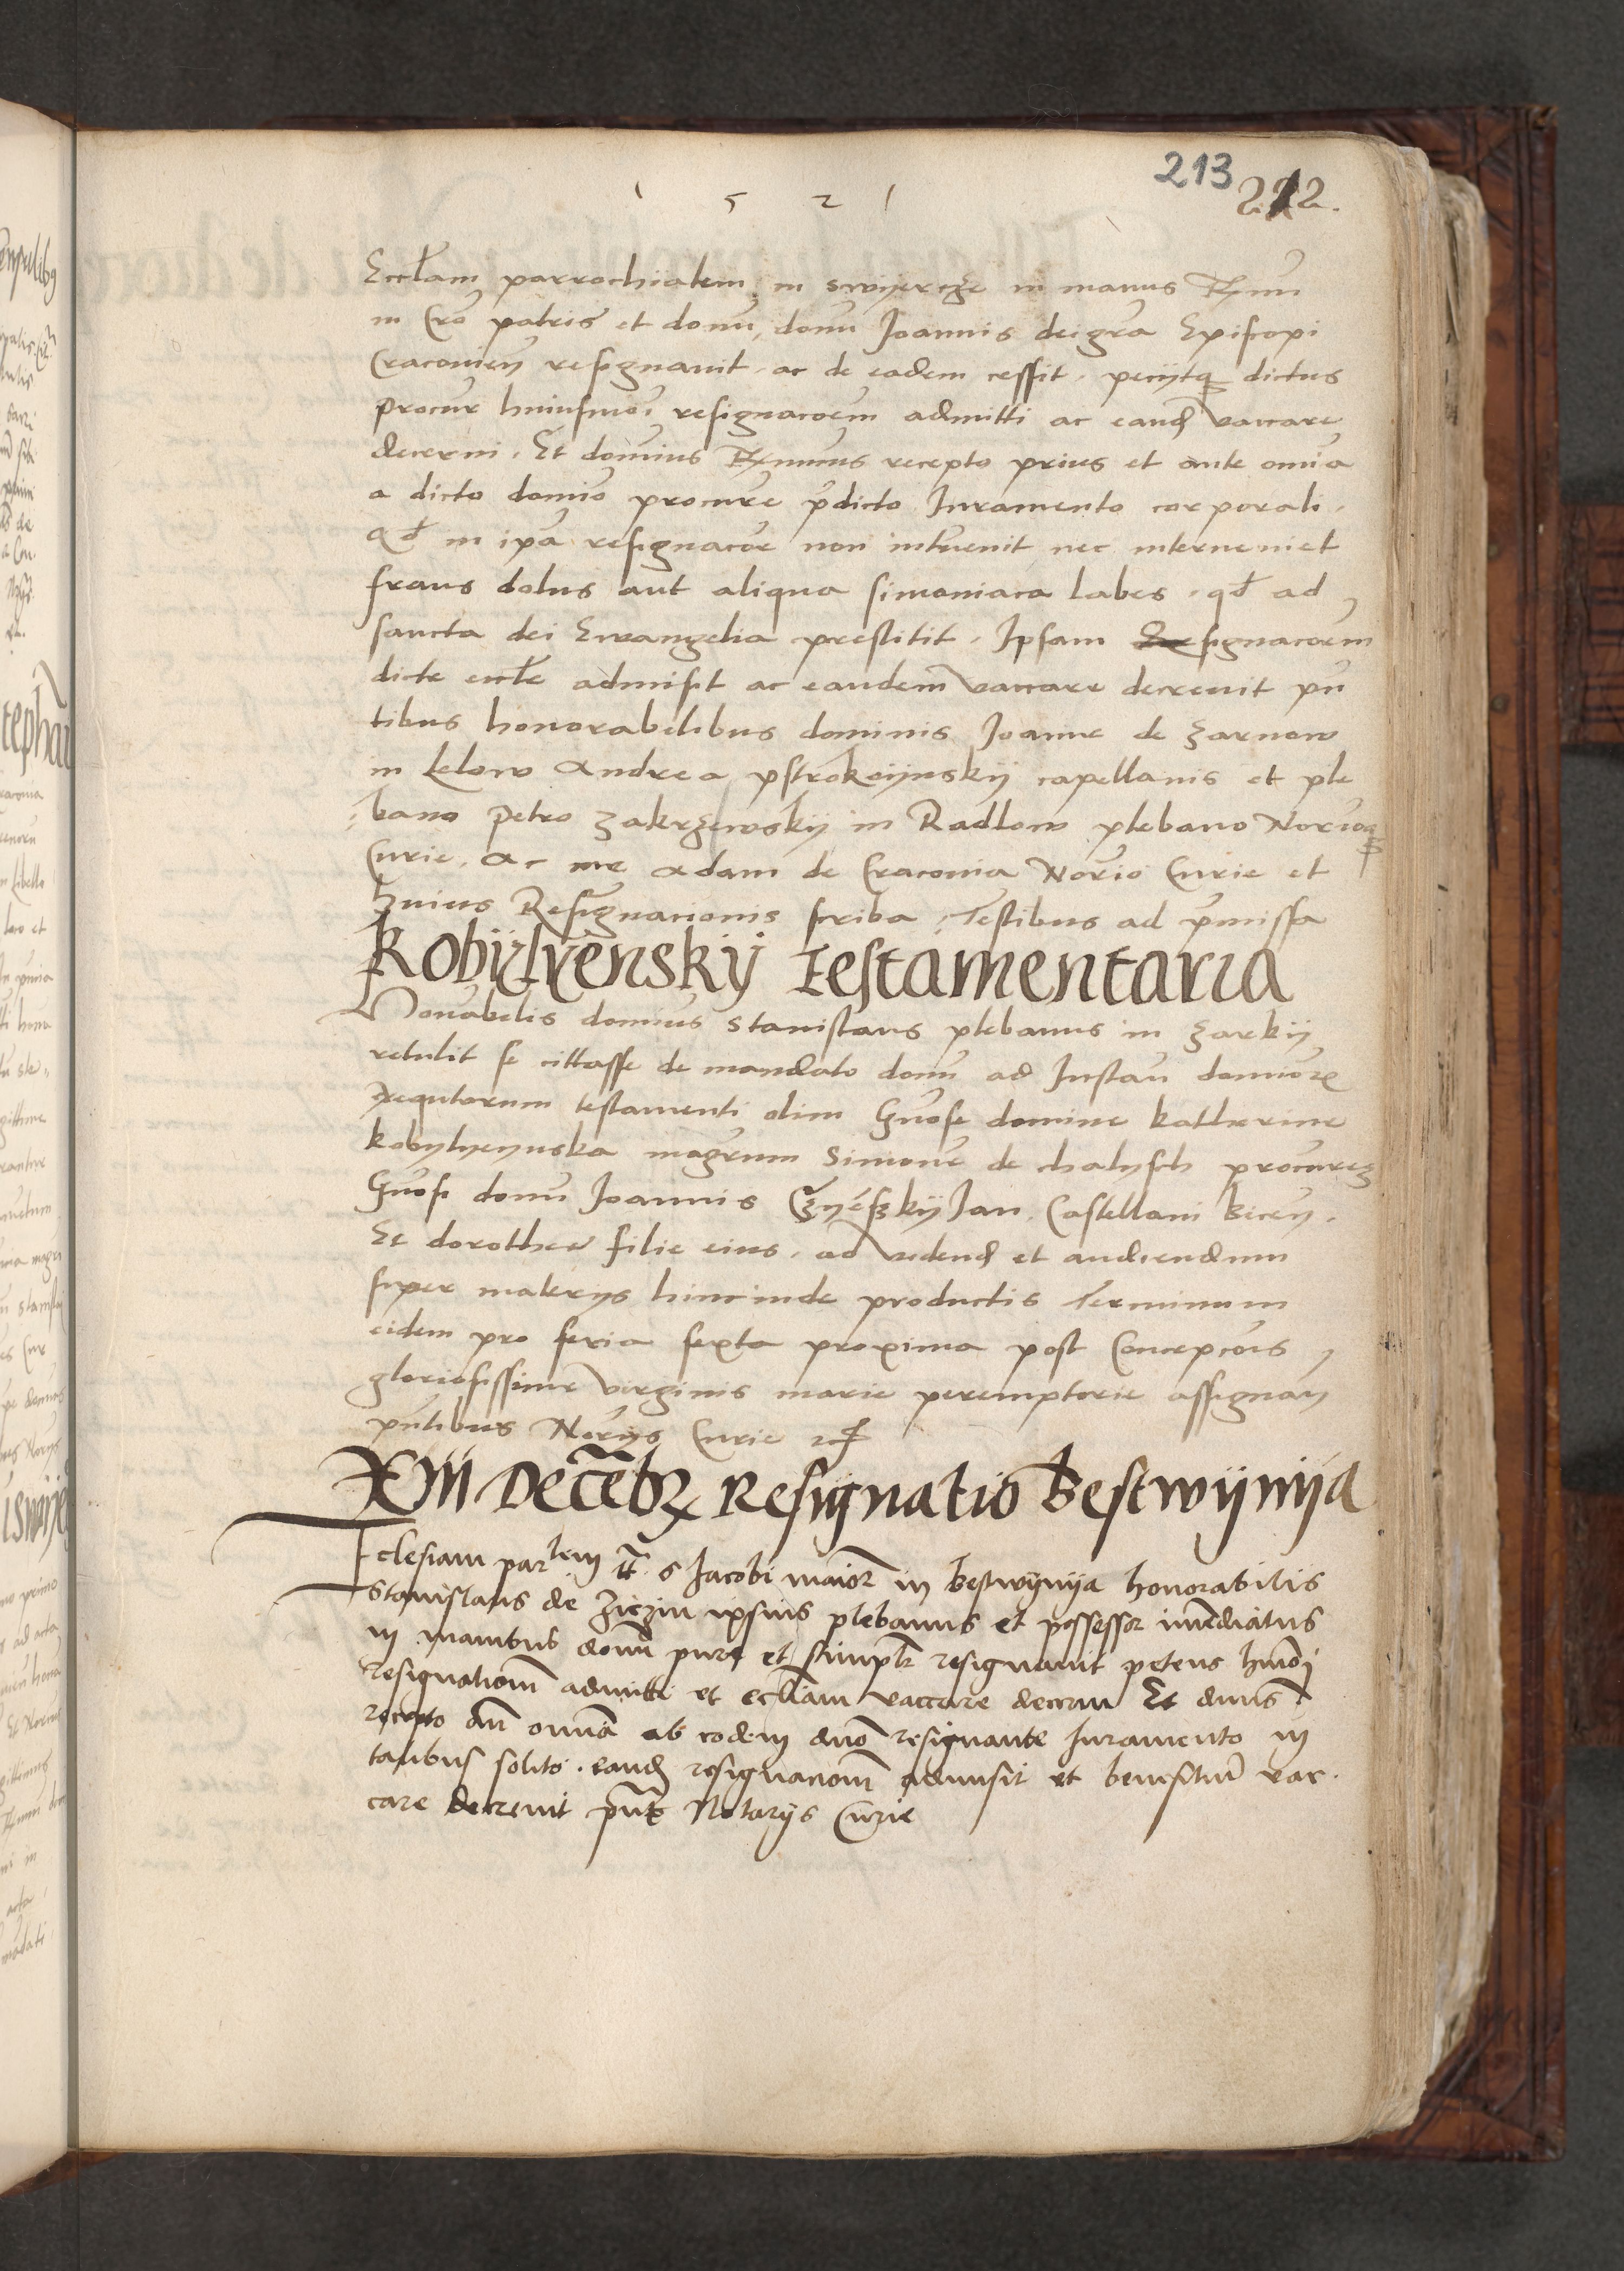 213
212.
1521
Eccl̃am parrochialem in swyercze in manus R̃mi
in Cr̃o patris et domĩ, domĩ Joannis dei gr̃a Episcopi
Cracovieñ resignavit. ac de eadem cessit. peciitq̃ dictus
procur̃ huiusmoĩ resignacoẽm admitti ac eand̃ vaccare
decerni. Et domĩus R̃mus recepto prius et ante om̃ia
a dicto domĩo procur̃e p̃dicto Juramento corporali.
Qd̃ in ip̃a resignacõe non intr̃uenit nec interveniet
fraus dolus aut aliqua simoniaca labes. qd̃ ad
sancta dei Ewangelia prestitit. Ipsam signacoẽm
dicte eccl̃e admisit ac eandem vaccare decrevit pñ
tibus honorabilibus dominis Joanne de Zarnow
in Lelow Andrea pstrokoynskij capellanis et ple
bano petro zakrzewskij in Radlow plebano Nor̃ioq̃
Curie. Ac me Adam de Cracovia Nor̃io Curie et
huius Resignacionis scriba, Testibus ad p̃missa
Kobijlyenskij Testamentaria
Honorabilis domĩus Stanislaus plebanus in Zarkij
retulit se cittasse de mandato domĩ ad Instañ domĩoꝝ
exequtorum testamenti olim Gñose domine Katherine
kobylyenska magr̃um Simonẽ de chalysch procureз
Gñosi domĩ Joannis Jan. Castellani Bieceñ.
Et dorothee filie eius. ad videnđ et audiendum
super materijs hincinde productis Terminum
eidem pro feria sexta proxima post Concepcõis
gloriosissime virginis marie peremptorie assignañ
pñtibus Nor̃ijs Curie
XIII Decẽbꝝ Resignatio Bestwijnija
Eclesiam par̃lem tt̃. S Jacobi maior̃ in Bestwijnija honorabilis
Stanislaus de ipsius plebanus et possessor im̃ediatus
in manibus domĩ pure et simpl̃r resignavit petens hmõi
resignationẽ admitti et eccl̃iam vaccare decerni Et dñus
recepto añ omĩa ab eodem dño resignante Juramento in
talibus solito. eand̃ resignationẽ admisit et beneficiũ vac
care decrevit pñte Notarijs Curie